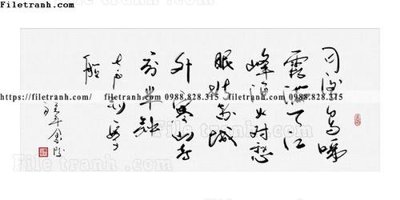 Filetranh.com
月落烏啼
霜滿天江
楓渔火对愁
眠姑苏城
外寒山寺
夜半鐘
声到客
船
https://filetranh.com 0988.828.315 https://filetranh.com 0988.828.315 https://filetranh.com 0988.828.315